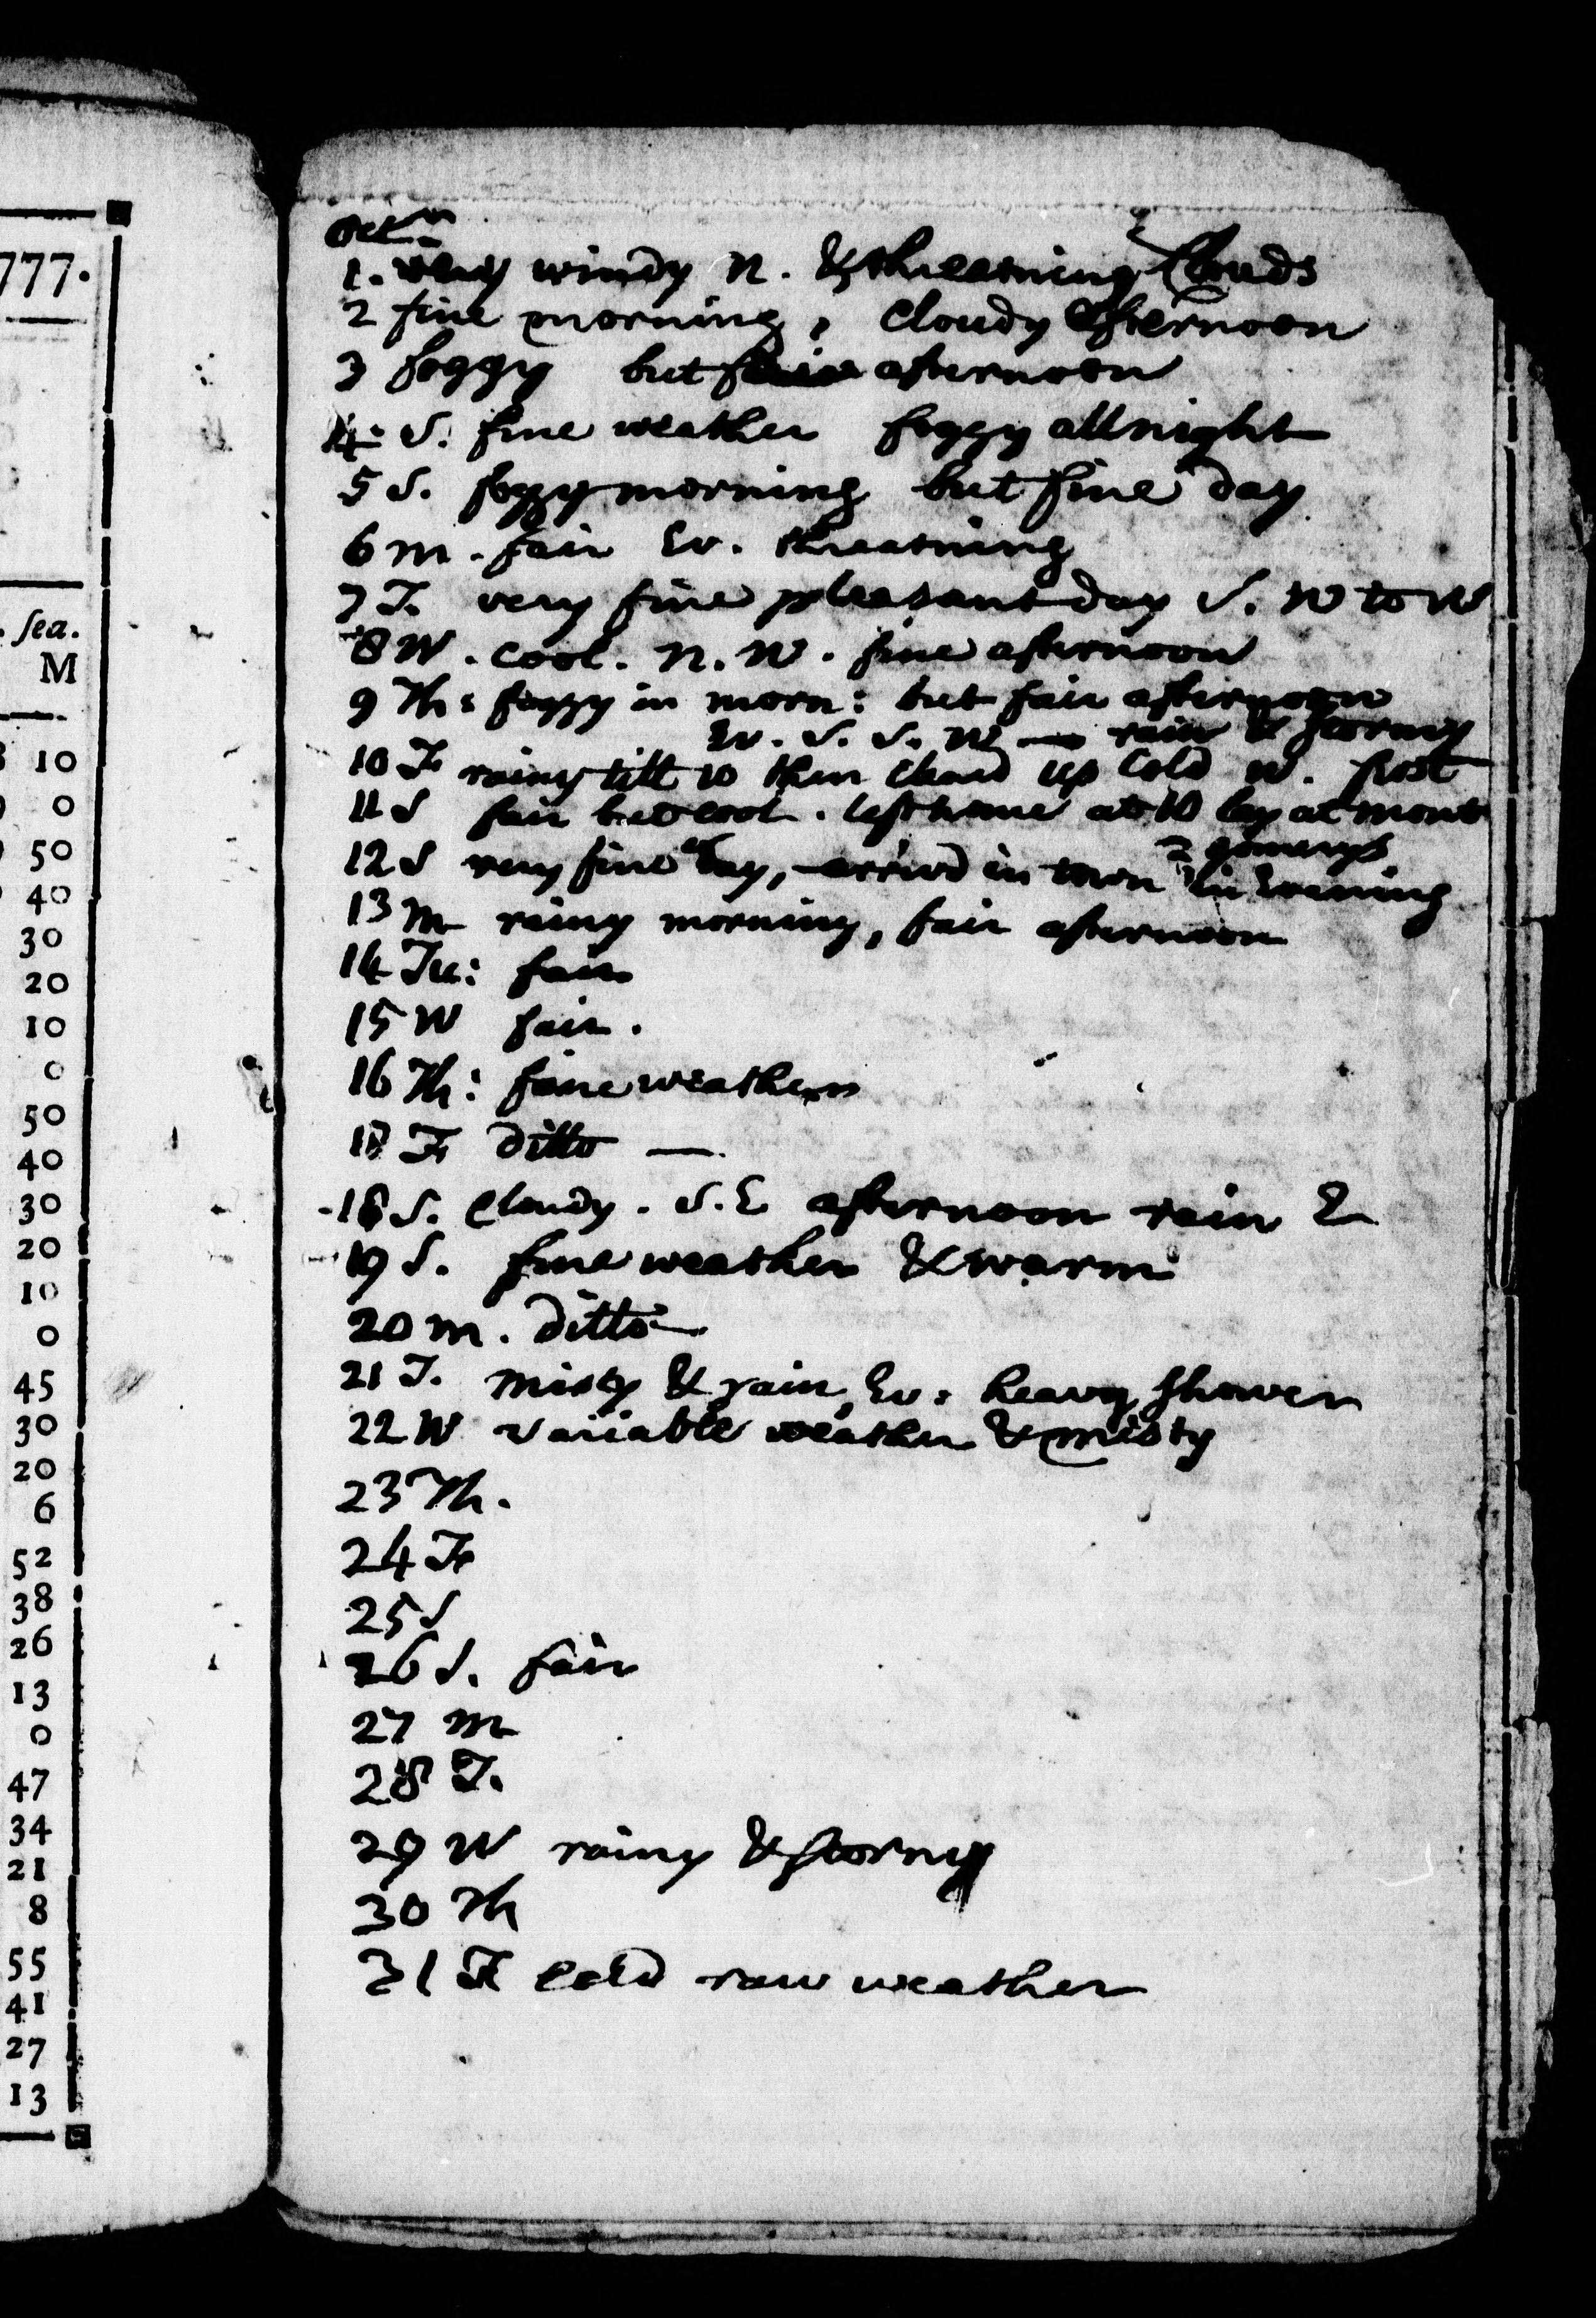 777.
sea.
M
10
0
50
40
30
20
10
0
50
40
30
20
10
0
45
30
20
6
52
38
26
13
0
47
34
21
8
55
41
27
13
Octr.
1. very windy N. & threatning Clouds
2 fine morning, Cloudy afternoon
3 foggy but fair afternoon
4. S. fine weather foggy all night
5 S. foggy morning but fine day
6 M. fair Ev. threatning
7 T. very fine pleasant day S. W to W
8 W. cool. N. W. fine afternoon
9 Th: foggy in morn: but fair afternoon
Ev. S. S. W — rain & stormy
10 F rainy till 10 then cleard up Cold W. frost
11 S fair but cool. left home at 10 lay at Mont
gomerys
12 S very fine day, arrivd in town in Evening
13 M rainy morning, fair afternoon
14 Tu: fair
15 W fair.
16 Th: fine weather
17 F ditto —
18 S. Cloudy. S. E afternoon rain &
19 S. fine weather & warm
20 M. ditto
21 T. misty & rain, Ev. heavy Shower
22 W variable weather & misty
23 Th.
24 F
25 S
26 S. fair
27 M
28 T.
29 W rainy & stormy
30 Th
31 F cold raw weather